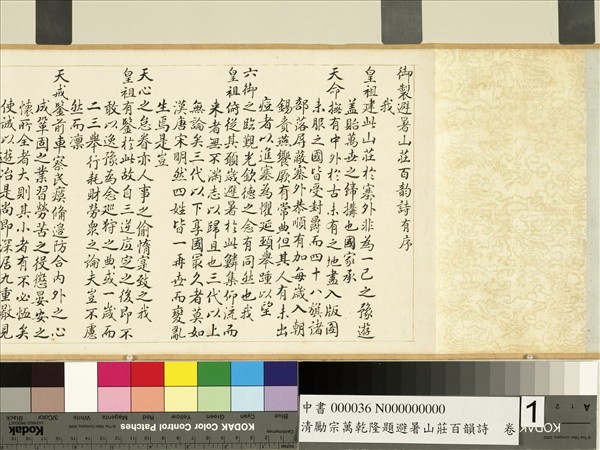 御製避暑山莊百韻詩有序
我
皇祖建此山莊於塞外非為一己之豫遊
蓋貽萬世之締構也國家承
天命撫有中外於古未有之地盡入版圖
未服之國皆受封爵而四十八旗諸
部落屏蔽塞外恭順有加每歲入朝
錫賚燕饗厥有常典但其人有未出
痘者以進塞為懼延頸舉踵以望
六御之臨覲光欽德之念有同然也我
皇祖俯從其願歲避暑於此鱗集仰流而
來者無不滿志以歸且也三代以上
無論矣三代以下享國冣久者莫如
漢唐宋明然四姓皆一再世而變亂
生焉是豈
天心之怠眷亦人事之偷惰寔致之我
皇祖有鑒於此故自三逆底定之後即不
敢以逸豫為念巡狩之典或一歲而
二三舉行耗財勞眾之論夫豈不慮
然而凜
天戒鑒前車察民瘼備邊防合內外之心
成鞏固之業習勞苦之役懲晏安之
懷所全者大則其小者有不必恤矣
使誠以遊冶是尚即深居九重散見
Blue Cyan Green Yellow Red Magenta White 3/Color Black
KODAK Color Control Patches
中書 000036 N000000000
清勵宗萬乾隆題避暑山莊百韻詩 卷
1
A 1 2
KODAK